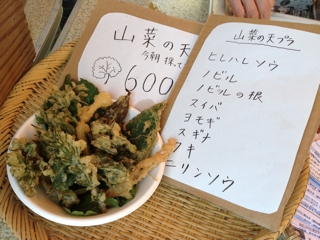 山菜の天
今朝採って
600
山菜の天プラ
ヒレハレソウ
ノビル
ノビルの根
スイバ
ヨモギ
スギナ
フキ
ニリンソウ